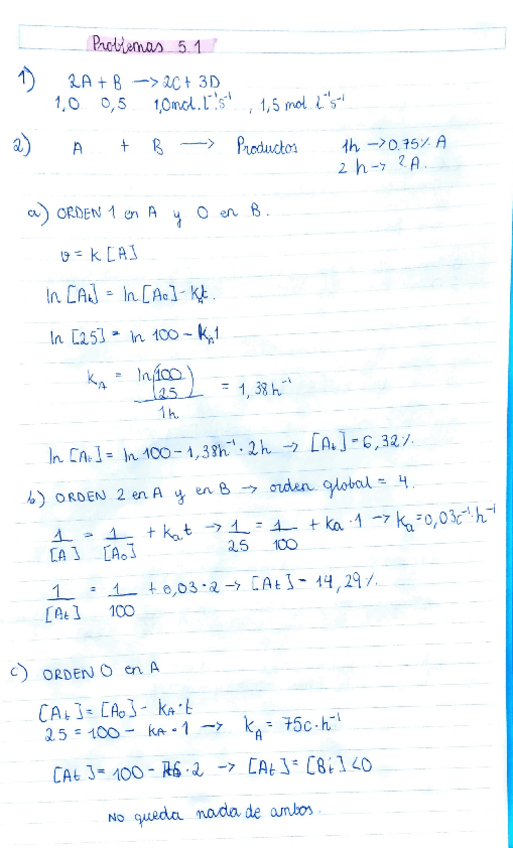 Problemas 5.1
1) 2A + B → 2C + 3D
1,0 0,5 1,0 mol.l⁻¹s⁻¹, 1,5 mol l⁻¹s⁻¹
2) A + B → Productos 1h → 0.75% A
2 h → ? A.
a) ORDEN 1 en A y 0 en B.
v = k [A]
ln [At] = ln [A₀] - kₐt.
ln [25] = ln 100 - kₐ1
k_A = ln(100/25) / 1h = 1,38 h⁻¹
ln [At] = ln 100 - 1,38h⁻¹ · 2h → [At] = 6,32%.
b) ORDEN 2 en A y en B → orden global = 4.
1/[A] = 1/[A₀] + kₐt → 1/25 = 1/100 + ka · 1 → kₐ = 0,03c⁻¹·h⁻¹
1/[At] = 1/100 + 0,03 · 2 → [At] = 14,29%.
c) ORDEN 0 en A
[At] = [A₀] - k_A · t
25 = 100 - k_A · 1 → k_A = 75c · h⁻¹
[At] = 100 - 75 · 2 → [At] = [Bt] < 0
No queda nada de ambos.